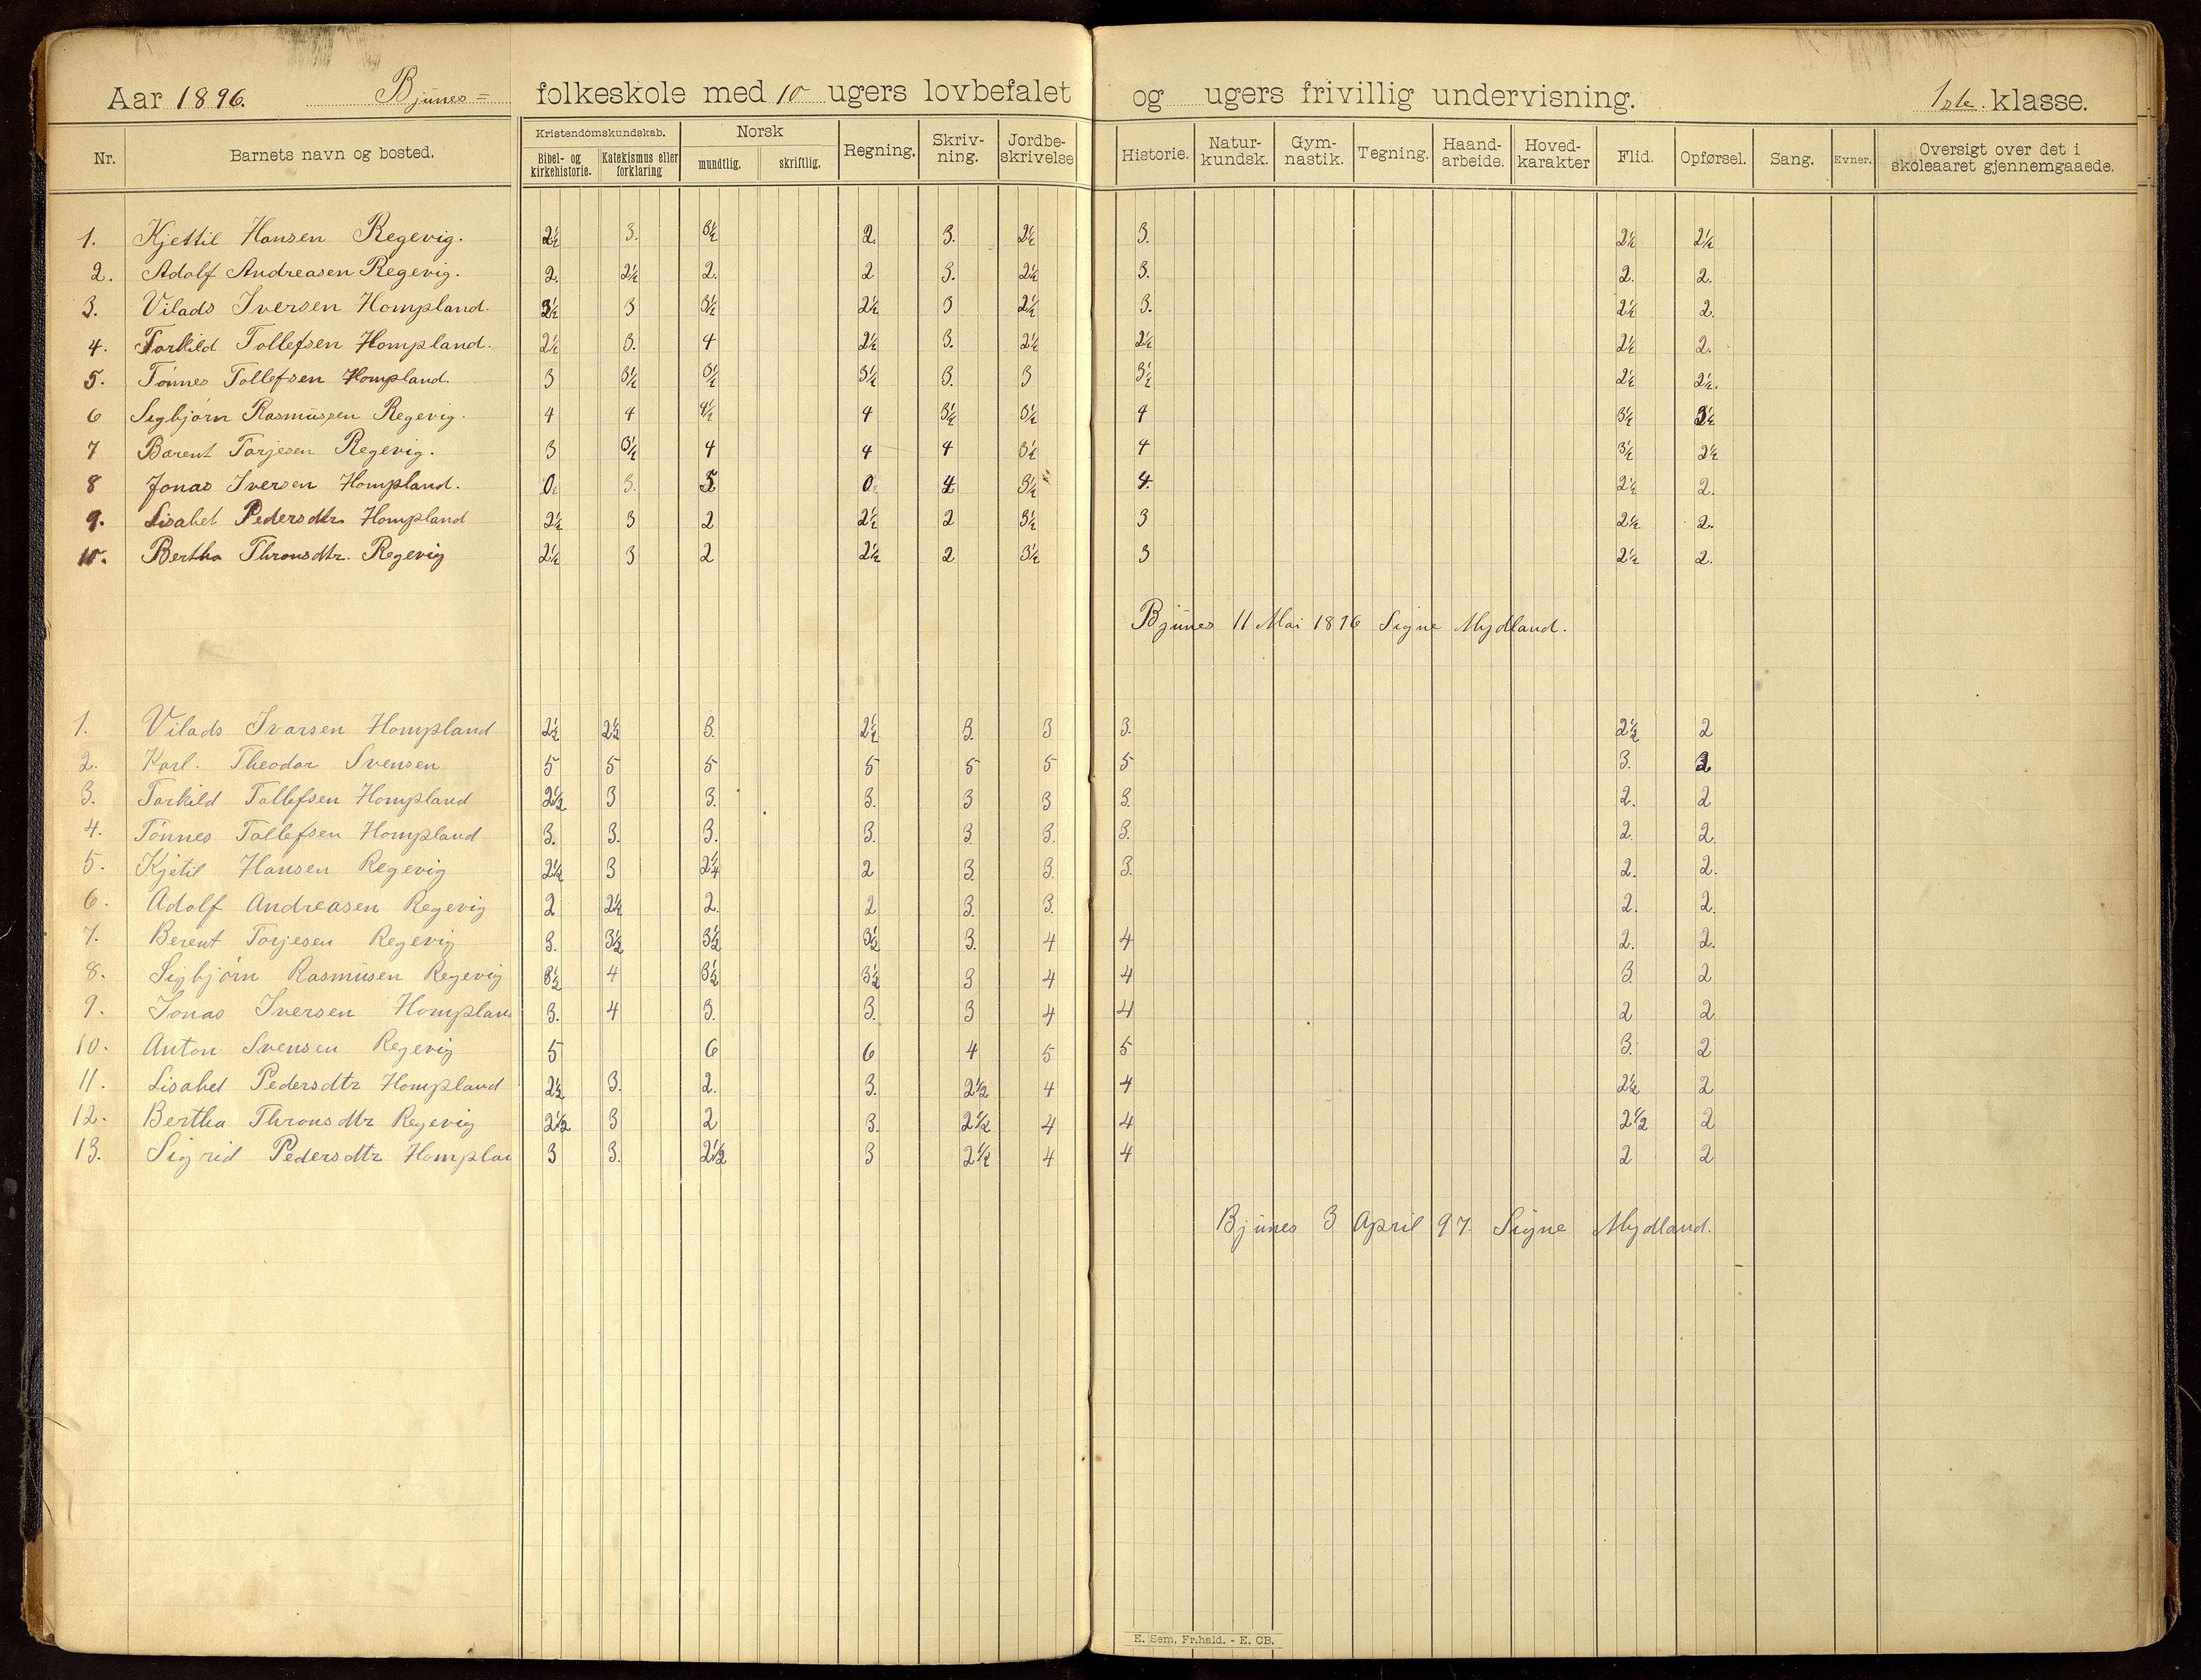 Aar 1896. Bjunes= folkeskole med 10 ugers lovbefalet og ugers frivillig undervisning. 1ste. klasse.
Nr. Barnets navn og bosted. Kristendomskundskab. Bibel- og kirkehistorie. Katekismus eller forklaring Norsk mundtlig. skriftlig. Regning. Skriv-ning. Jordbe-skrivelse Historie. Natur-kundsk. Gym-nastik. Tegning. Haand-arbeide. Hoved-karakter Flid. Opførsel. Sang. Evner. Oversigt over det i skoleaaret gjennemgaaede.
1. Kjettil Hansen Regevig. 2½ 3. 3½ 2. 3. 2½ 3. 2½ 2½
2. Adolf Andreasen Regevig. 2. 2½ 2. 2 3. 2½ 3. 2. 2.
3. Vilads Iversen Hompland. 2½ 3 3½ 2½ 3 2½ 3. 2½ 2.
4. Torkild Tollefsen Hompland. 2½ 3. 4 2½ 3. 2½ 2½ 2½ 2.
5. Tönnes Tollefsen Hompland. 3 3½ 3½ 3½ 3. 3 3½ 2½ 2½.
6 Sigbjörn Rasmussen Regevig. 4 4 4½ 4 3½ 3½ 4 3½ 2½
7 Barent Torjesen Regevig. 3 3½ 4 4 4 3½ 4 3½ 2½
8 Jonas Iversen Hompland. 0. 3. 5 0. 4 3½ 4. 2½ 2.
9. Lisabet Pedersdtr. Hompland 2½ 3 2 2½ 2 3½ 3 2½ 2.
10. Bertha Thronsdtr. Regevig 2½ 3 2 2½ 2 3½ 3 2½ 2.
Bjunes 11 Mai 1896 Signe Mydland.
1. Vilads Ivarsen Hompland 2½ 2½ 3. 2½ 3. 3 3. 2½ 2
2. Karl. Theodor Svensen 5 5 5 5 5 5 5 3. 2
3. Torkild Tollefsen Hompland 2½ 3 3. 3. 3 3 3. 2. 2
4. Tönnes Tollefsen Hompland 3. 3. 3. 3. 3. 3. 3. 2. 2.
5. Kjetil Hansen Regevig 2½ 3 2¼ 2 3. 3. 3. 2. 2.
6. Adolf Andreasen Regevig 2 2½ 2. 2 3. 3. 2. 2.
7. Berent Torjesen Regevig 3. 3½ 3½ 3½ 3. 4 4 2. 2.
8. Sigbjörn Rasmusen Regevig 3½ 4 3½ 3½ 3 4 4 3. 2
9. Jonas Iversen Hompland 3. 4 3. 3. 3 4 4 2 2
10. Anton Svensen Regevig 5 6 6 4 5 5 3. 2
11. Lisabet Pedersdtr Hompland 2½ 3. 2. 3. 2½ 4 4 2½ 2
12. Bertha Thronsdtr Regevig 2½ 3 2 3. 2½ 4 4 2½ 2
13. Sigrid Pedersdtr Homplan 3 3. 2½ 3 2½ 4 4 2 2
Bjunes 3 April 97 Signe Mydland.
E. Sem, Fr.hald. - E. CB.